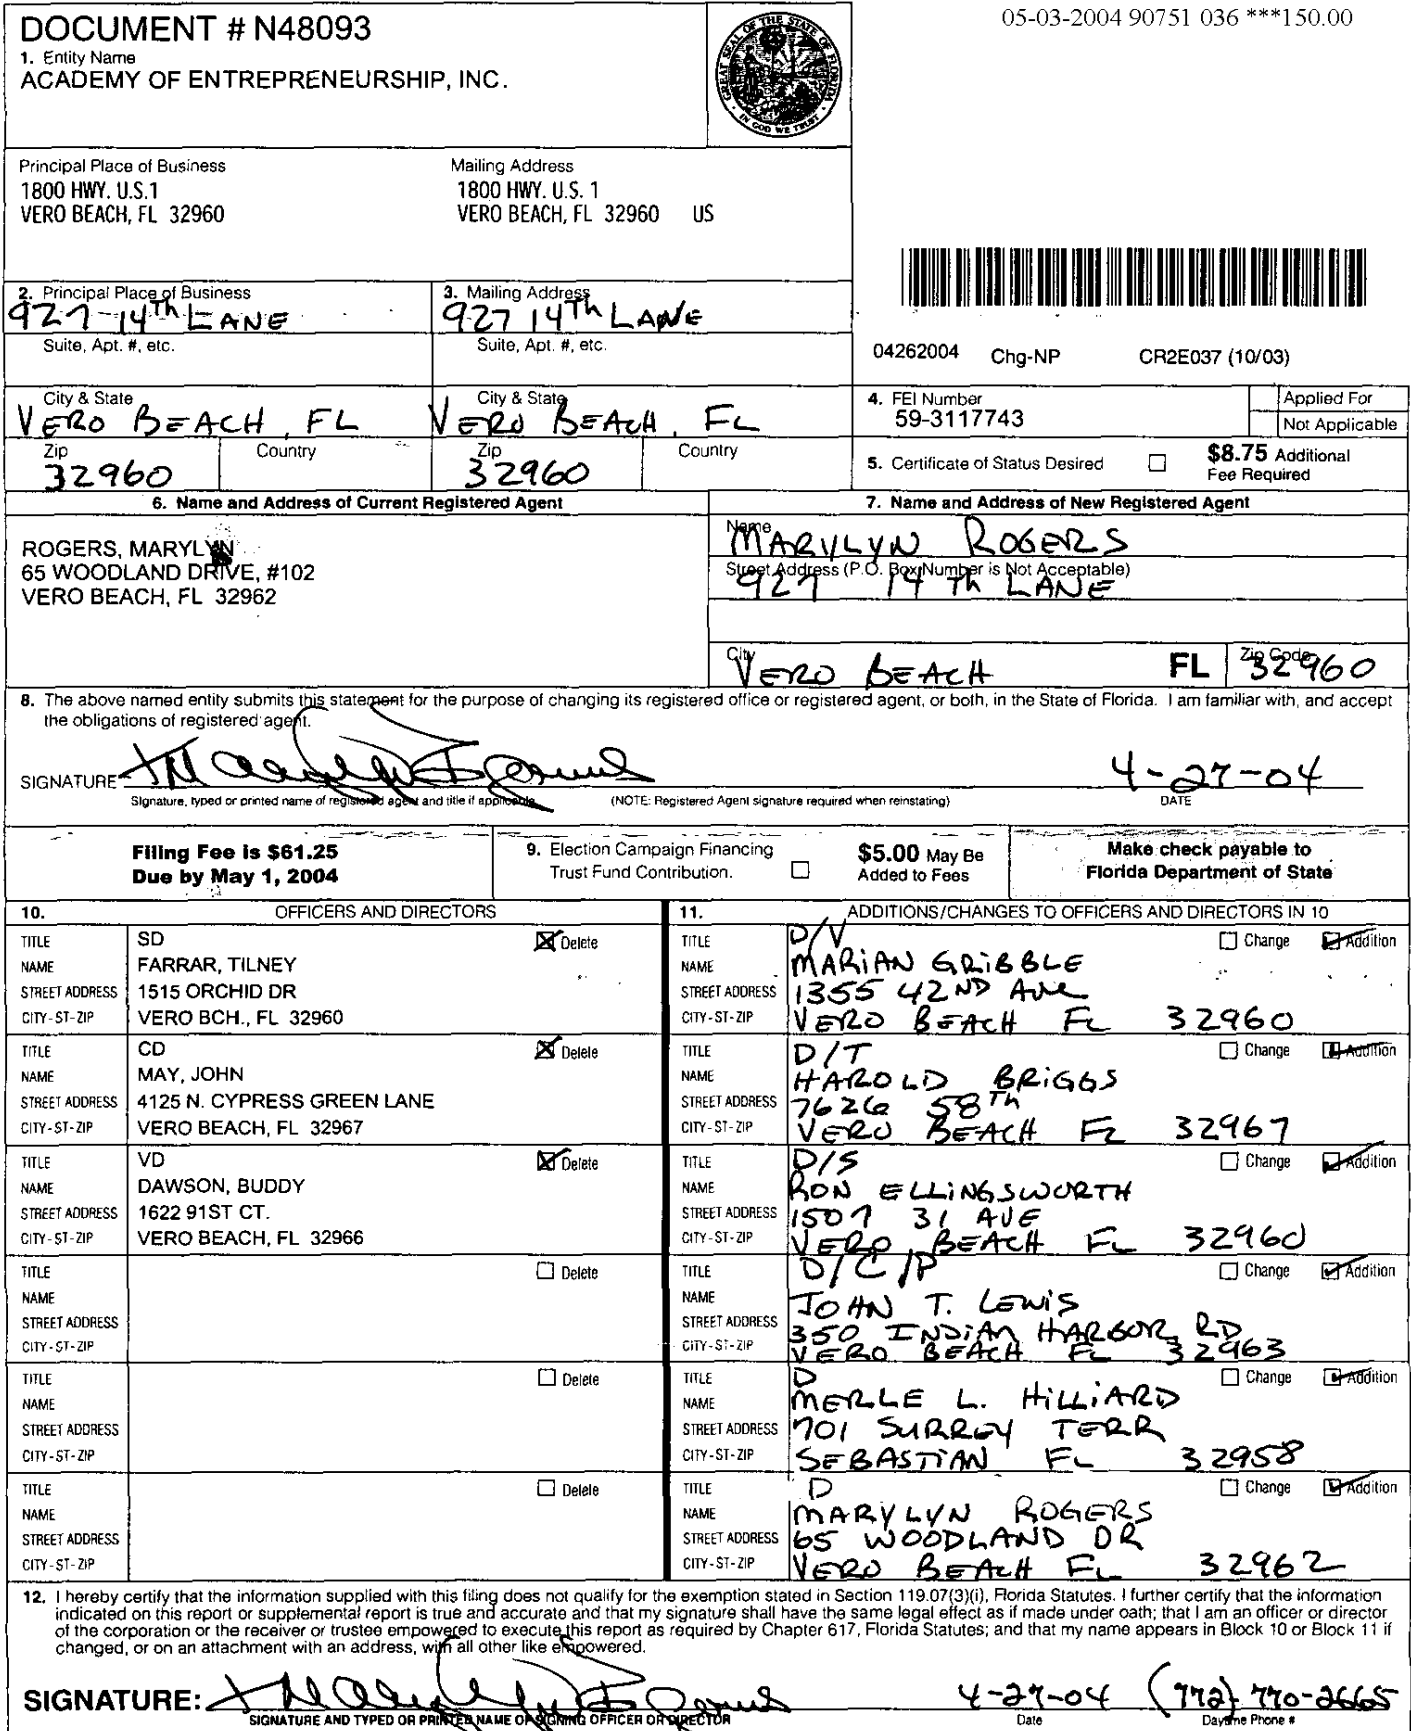 05-03-2004 90751 036 ***150.00
DOCUMENT # N48093
1. Entity Name
ACADEMY OF ENTREPRENEURSHIP, INC.
GREAT SEAL OF THE STATE OF FLORIDA
IN GOD WE TRUST
Principal Place of Business
1800 HWY. U.S.1
VERO BEACH, FL 32960
Mailing Address
1800 HWY. U.S. 1
VERO BEACH, FL 32960 US
2. Principal Place of Business
927 14Th LANE
Suite, Apt. #, etc.
City & State
VERO BEACH, FL
Zip
32960
Country
3. Mailing Address
927 14Th LANE
Suite, Apt. #, etc.
City & State
VERO BEACH, FL
Zip
32960
Country
04262004 Chg-NP CR2E037 (10/03)
4. FEI Number
59-3117743
Applied For
Not Applicable
5. Certificate of Status Desired
$8.75 Additional
Fee Required
6. Name and Address of Current Registered Agent
ROGERS, MARYLYN
65 WOODLAND DRIVE, #102
VERO BEACH, FL 32962
7. Name and Address of New Registered Agent
Name
MARYLYN ROGERS
Street Address (P.O. Box Number is Not Acceptable)
927 14 Th LANE
City
VERO BEACH
FL
Zip Code
32960
8. The above named entity submits this statement for the purpose of changing its registered office or registered agent, or both, in the State of Florida. I am familiar with, and accept
the obligations of registered agent.
SIGNATURE Marylyn Rogers 4-27-04
Signature, typed or printed name of registered agent and title if applicable. (NOTE: Registered Agent signature required when reinstating) DATE
Filing Fee is $61.25
Due by May 1, 2004
9. Election Campaign Financing
Trust Fund Contribution.
$5.00 May Be
Added to Fees
Make check payable to
Florida Department of State
10. OFFICERS AND DIRECTORS
11. ADDITIONS/CHANGES TO OFFICERS AND DIRECTORS IN 10
TITLE SD Delete
NAME FARRAR, TILNEY
STREET ADDRESS 1515 ORCHID DR
CITY-ST-ZIP VERO BCH., FL 32960
TITLE D/V Change Addition
NAME MARIAN GRIBBLE
STREET ADDRESS 1355 42ND AVE
CITY-ST-ZIP VERO BEACH FL 32960
TITLE CD Delete
NAME MAY, JOHN
STREET ADDRESS 4125 N. CYPRESS GREEN LANE
CITY-ST-ZIP VERO BEACH, FL 32967
TITLE D/T Change Addition
NAME HAROLD BRIGGS
STREET ADDRESS 7626 58Th
CITY-ST-ZIP VERO BEACH FL 32967
TITLE VD Delete
NAME DAWSON, BUDDY
STREET ADDRESS 1622 91ST CT.
CITY-ST-ZIP VERO BEACH, FL 32966
TITLE D/S Change Addition
NAME RON ELLINGSWORTH
STREET ADDRESS 1507 31 AVE
CITY-ST-ZIP VERO BEACH FL 32960
TITLE Delete
NAME
STREET ADDRESS
CITY-ST-ZIP
TITLE D/C/P Change Addition
NAME JOHN T. LEWIS
STREET ADDRESS 350 INDIAN HARBOR RD
CITY-ST-ZIP VERO BEACH FL 32963
TITLE Delete
NAME
STREET ADDRESS
CITY-ST-ZIP
TITLE D Change Addition
NAME MERLE L. HILLIARD
STREET ADDRESS 701 SURREY TERR
CITY-ST-ZIP SEBASTIAN FL 32958
TITLE Delete
NAME
STREET ADDRESS
CITY-ST-ZIP
TITLE D Change Addition
NAME MARYLYN ROGERS
STREET ADDRESS 65 WOODLAND DR
CITY-ST-ZIP VERO BEACH FL 32962
12. I hereby certify that the information supplied with this filing does not qualify for the exemption stated in Section 119.07(3)(i), Florida Statutes. I further certify that the information
indicated on this report or supplemental report is true and accurate and that my signature shall have the same legal effect as if made under oath; that I am an officer or director
of the corporation or the receiver or trustee empowered to execute this report as required by Chapter 617, Florida Statutes; and that my name appears in Block 10 or Block 11 if
changed, or on an attachment with an address, with all other like empowered.
SIGNATURE: Marylyn Rogers 4-27-04 (772) 770-2665
SIGNATURE AND TYPED OR PRINTED NAME OF SIGNING OFFICER OR DIRECTOR Date Daytime Phone #